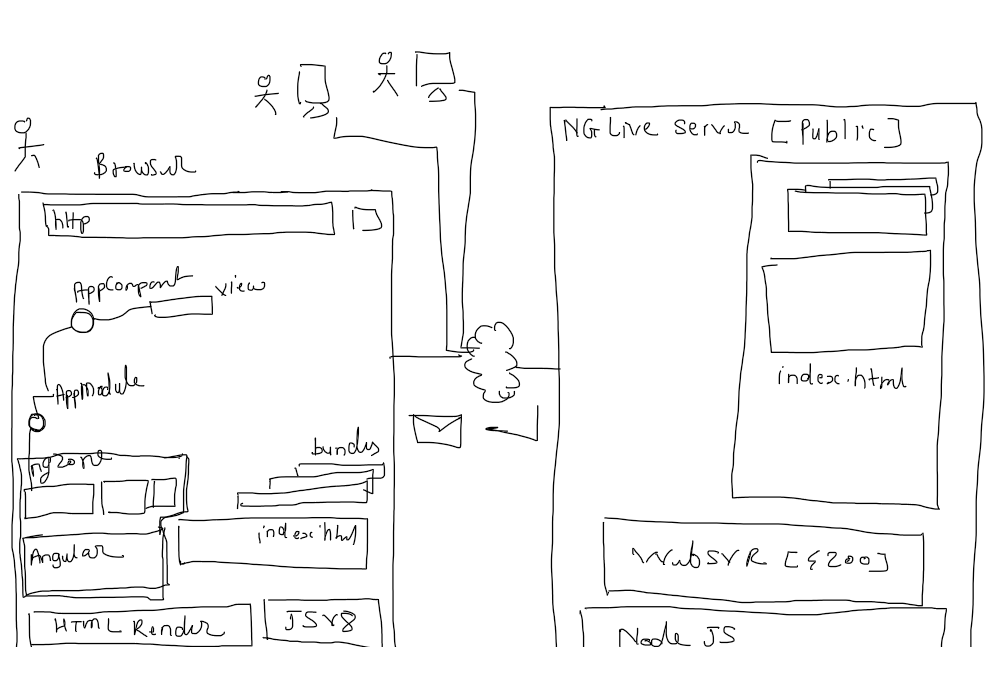 Browser
http
AppComponant
view
AppModule
ngzone
bundls
index.html
Angular
HTML Render
JSV8
NG Live Server [Public]
index.html
WebSVR [4200]
Node JS